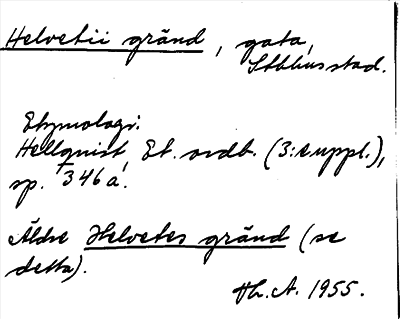 Helvetii gränd, gata,
Sthlms stad.
Etymologi:
Hellquist, Et. ordb. (3: suppl.),
sp. 1346 a.
Äldre Helvetes gränd (se
detta).
Th. A. 1955.